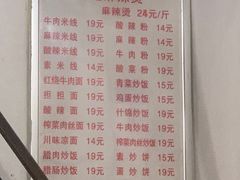 麻辣烫
麻辣烫 24元/斤
牛肉米线 19元 酸辣粉 14元
麻辣米线 19元 麻辣粉 14元
酸辣米线 19元 牛肉粉 19元
素米线 14元 酸菜粉 15元
红烧牛肉面 19元 青菜炒饭 15元
担担面 15元 鸡蛋炒饭 15元
酸辣面 15元 什锦炒饭 19元
榨菜肉丝面 15元 牛肉炒饭 19元
川味凉面 14元 榨菜肉丝炒饭 19元
腊肉炒饭 19元 素炒饼 15元
腊肠炒饭 19元 蛋炒饼 19元